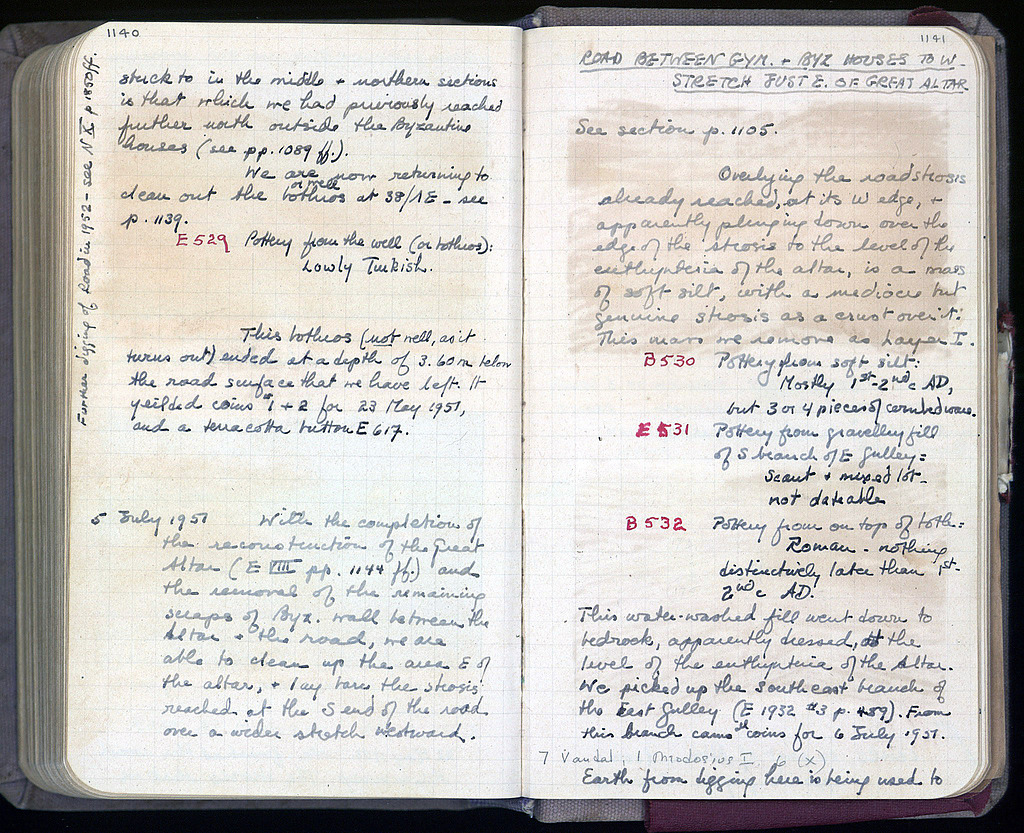 1140
Further digging of Road in 1952 – see N X p 1850 ff.
stuck to in the middle + northern sections
is that which we had previously reached
further north outside the Byzantine
houses (see pp. 1089 ff.).
We are now returning to
or well
clean out the bothros at 38/ΛE – see
p. 1139.
E 529 Pottery from the well (or bothros):
Lowly Turkish.
This bothros (not well, as it
turns out) ended at a depth of 3.60 m below
the road surface that we have left. It
yeilded coins #1 + 2 for 23 May 1951,
and a terracotta button E 617.
5 July 1951 With the completion of
the reconstruction of the Great
Altar (E VIII pp. 1144 ff.) and
the removal of the remaining
scraps of Byz. wall between the
Altar + the road, we are
able to clean up the area E of
the altar, + lay bare the strosis
reached at the S end of the road
over a wider stretch westward.
1141
ROAD BETWEEN GYM. + BYZ HOUSES TO W –
STRETCH JUST E. OF GREAT ALTAR
See section p. 1105.
Overlying the road strosis
already reached, at its W edge, +
apparently plunging down over the
edge of the strosis to the level of the
euthynteria of the altar, is a mass
of soft silt, with a mediocre but
genuine strosis as a crust over it:
This mass we remove as Layer I.
B 530 Pottery from soft silt:
Mostly 1st-2nd c AD,
but 3 or 4 pieces of combed ware.
E 531 Pottery from gravelley fill
of S branch of E Gulley:
Scant + mixed lot –
not dateable
B 532 Pottery from on top of both:
Roman – nothing
distinctively later than 1st-
2nd c AD.
This water-washed fill went down to
bedrock, apparently dressed, at the
level of the euthynteria of the Altar.
We picked up the southeast branch of
the East Gulley (E 1932 #3 p. 489). From
this branch came coins for 6 July 1951.
7 Vandal, 1 Theodosius I 6 (x)
Earth from digging here is being used to